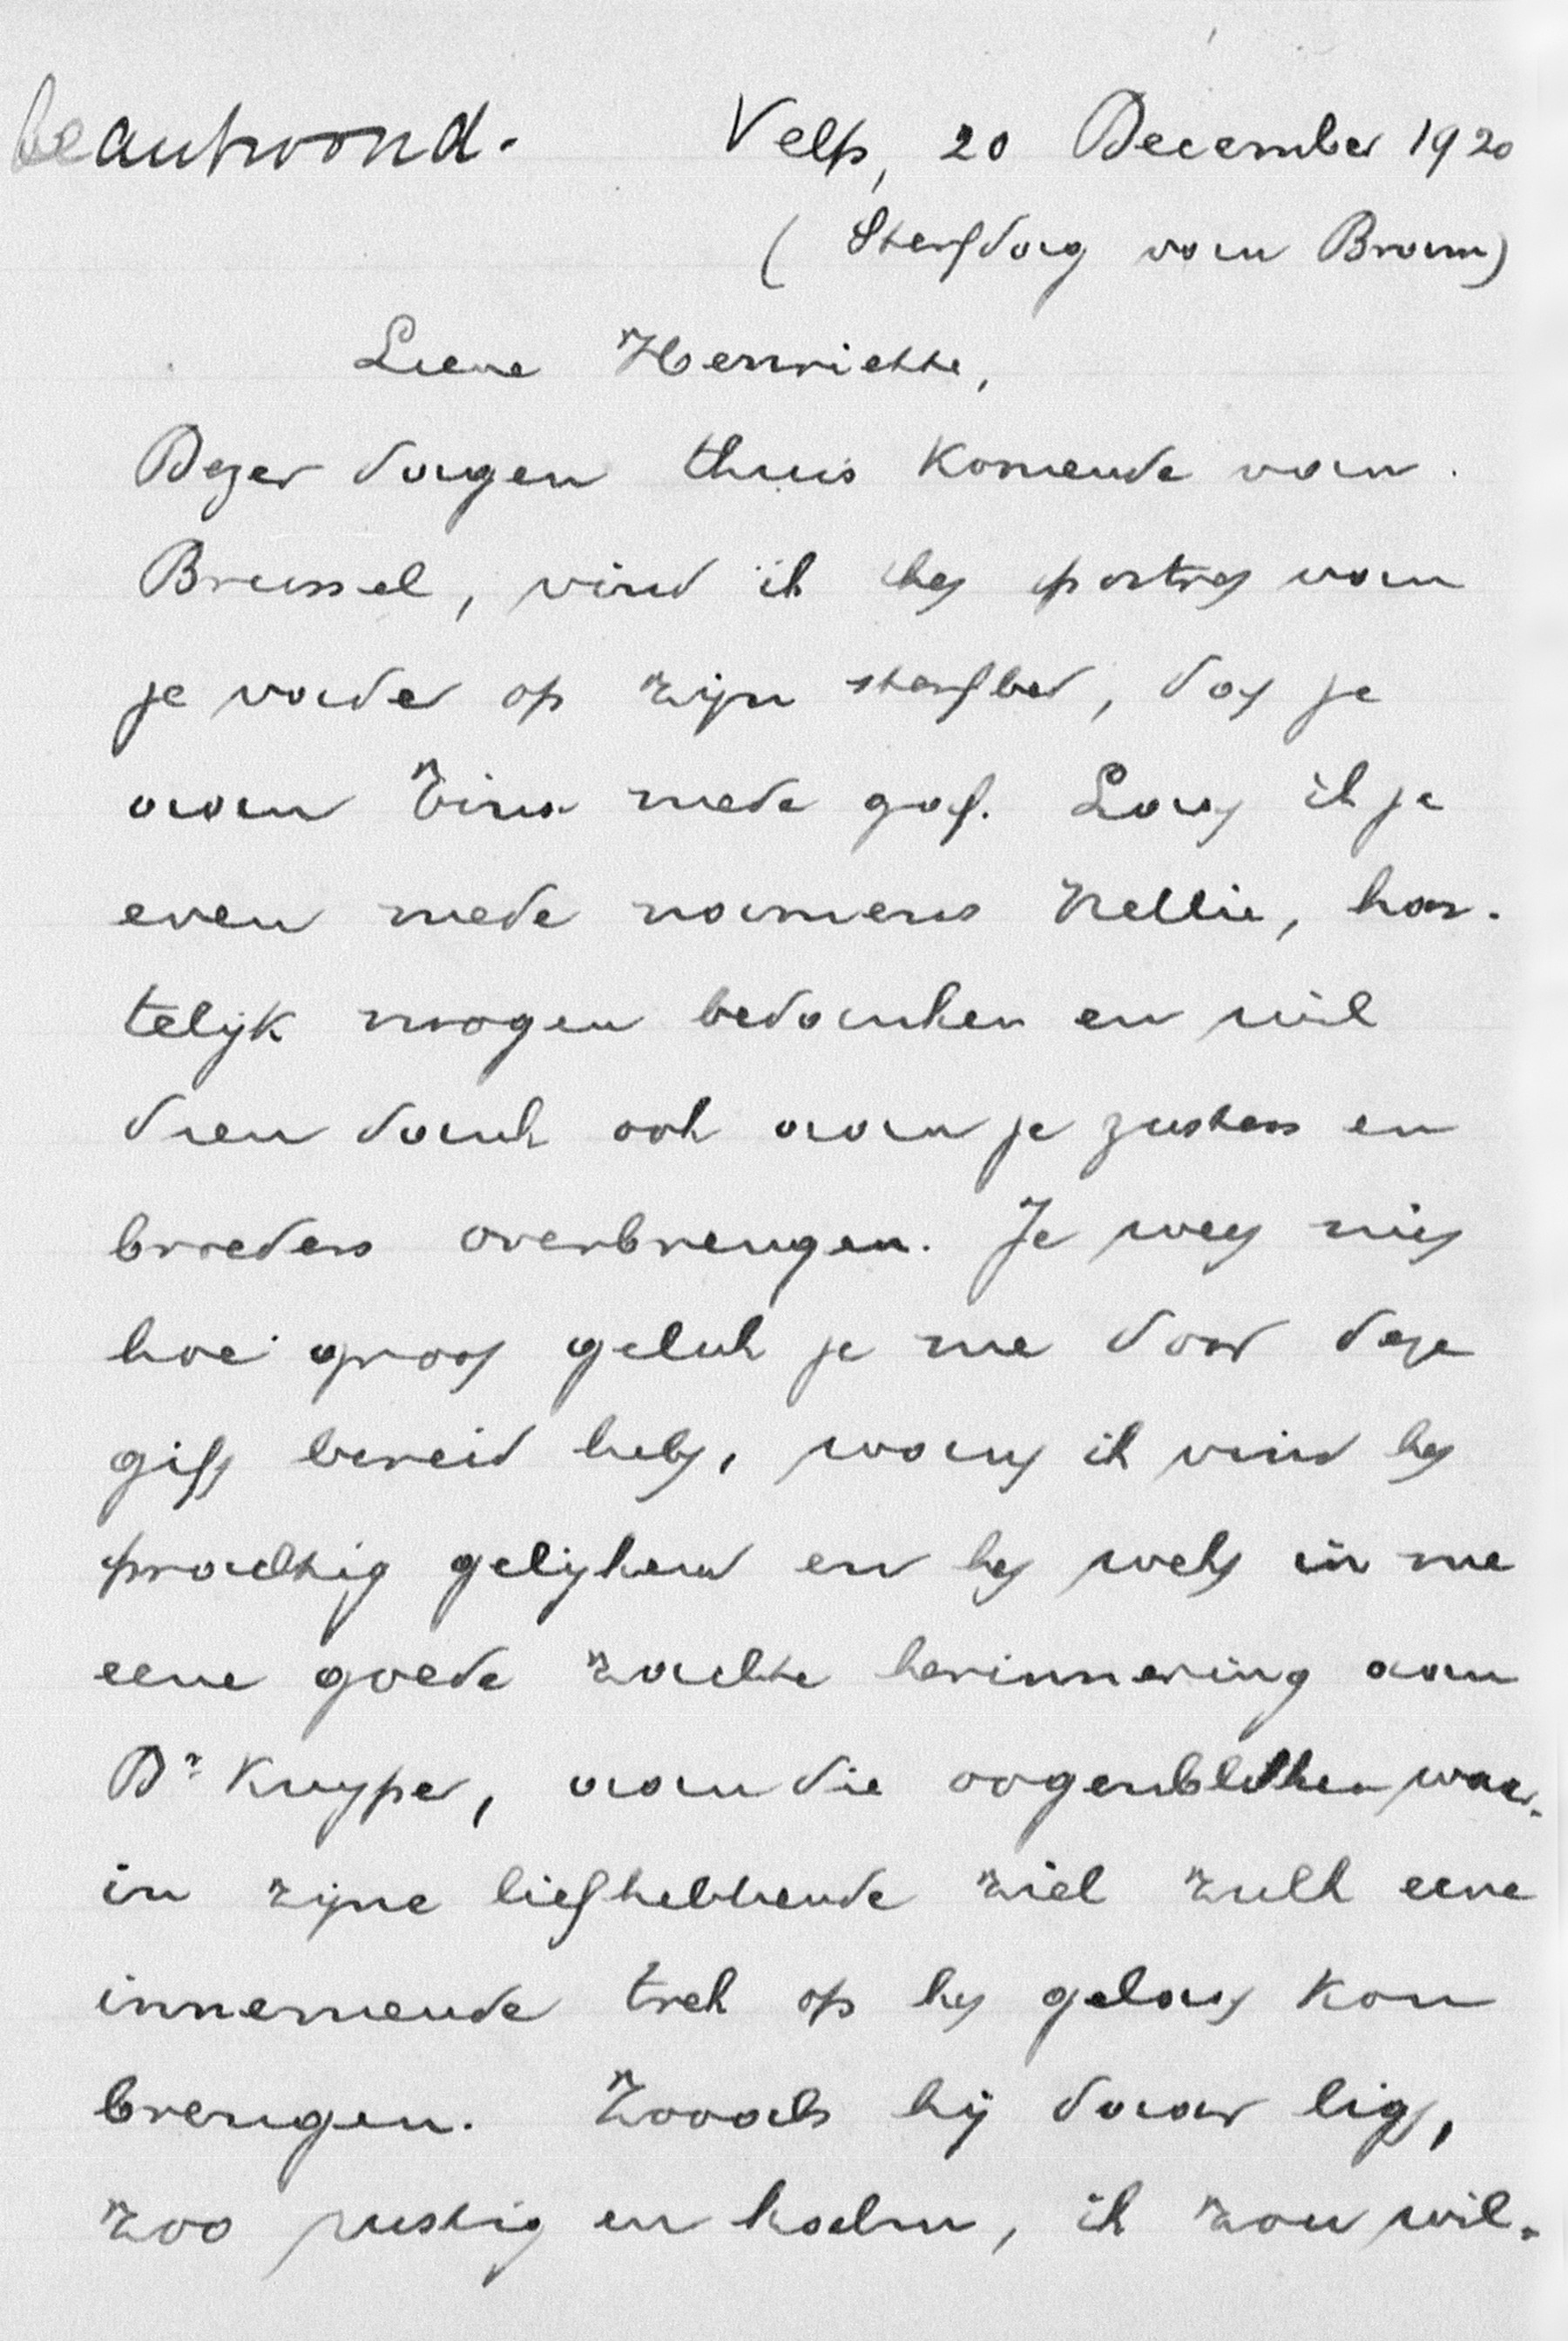 beantwoord. Velp, 20 December 1920
(Sterfdag van Bram)
Lieve Henriette,
Dezer dagen thuis komende van
Brussel, vind ik het portret van
je vader op zijn sterfbed, dat je
aan Tina mede gaf. Laat ik je
even mede namens Nellie, har-
telijk mogen bedanken en wil
dien dank ook aan je zusters en
broeders overbrengen. Je weet niet
hoe groot geluk je me door deze
gift bereid hebt, want ik vind het
prachtig gelijkend en het wekt in me
eene goede zachte herinnering aan
Dr Kuyper, aan die oogenblikken waar-
in zijne liefhebbende ziel zulk eene
innemende trek op het gelaat kon
brengen. Zooals hij daar ligt,
zoo rustig en kalm, ik zou wil-